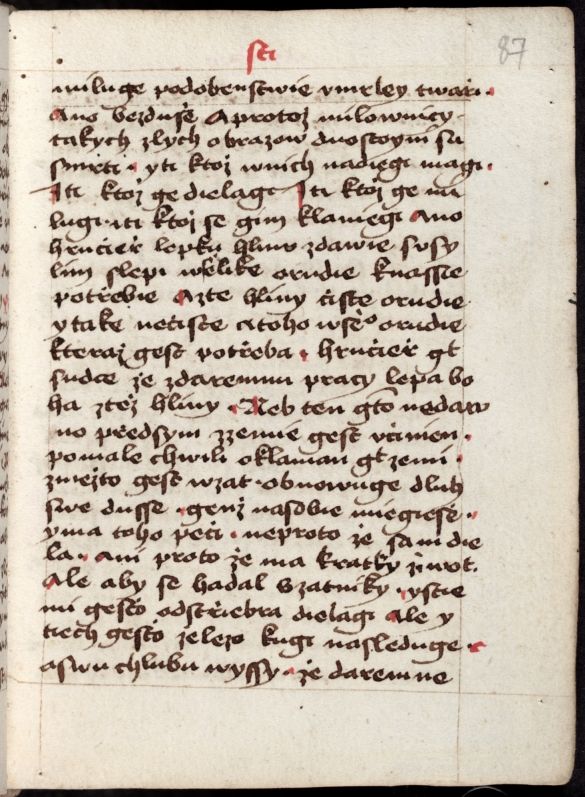 sti
87
miluge podobenstwie vmrley twarzi.
Ano bezdusse A protoz milownicy
takych zlych obrazow duostoyni su
smrti. y ti ktoz wnich nadiegi magi.
I ti ktoz ge dielagi I ti ktoz ge mi
lugi. i ti ktoz se gim klaniegi Ano
hrncierz lepku hlinu zdawie s
lim slepi welike orudie knassie
potrzebie Azte hliny ciste orudie
y take neciste a toho wsseho orudie
kteraz gest potrzeba. hrncierz gt
sudce ze zdaremnu pracy lepa bo
ha z tez hliny. Neb ten gto nedaw
no przedsym zzemie gest vcinien.
pomale chwili oklaman gt zemi.
znizto gest wzat. obnowuge dluh
swe dusse. genz nasobie miegiese.
yma toho peci. neproto ze sam die
la. Ani proto ze ma kratky ziwot.
Ale aby se hadal Szatniky. ystie
mi gesto odstrziebra dielagi Ale y
tiech gesto zelezo kugi nasleduge.
aswu chlubu wyssy. ze daremne